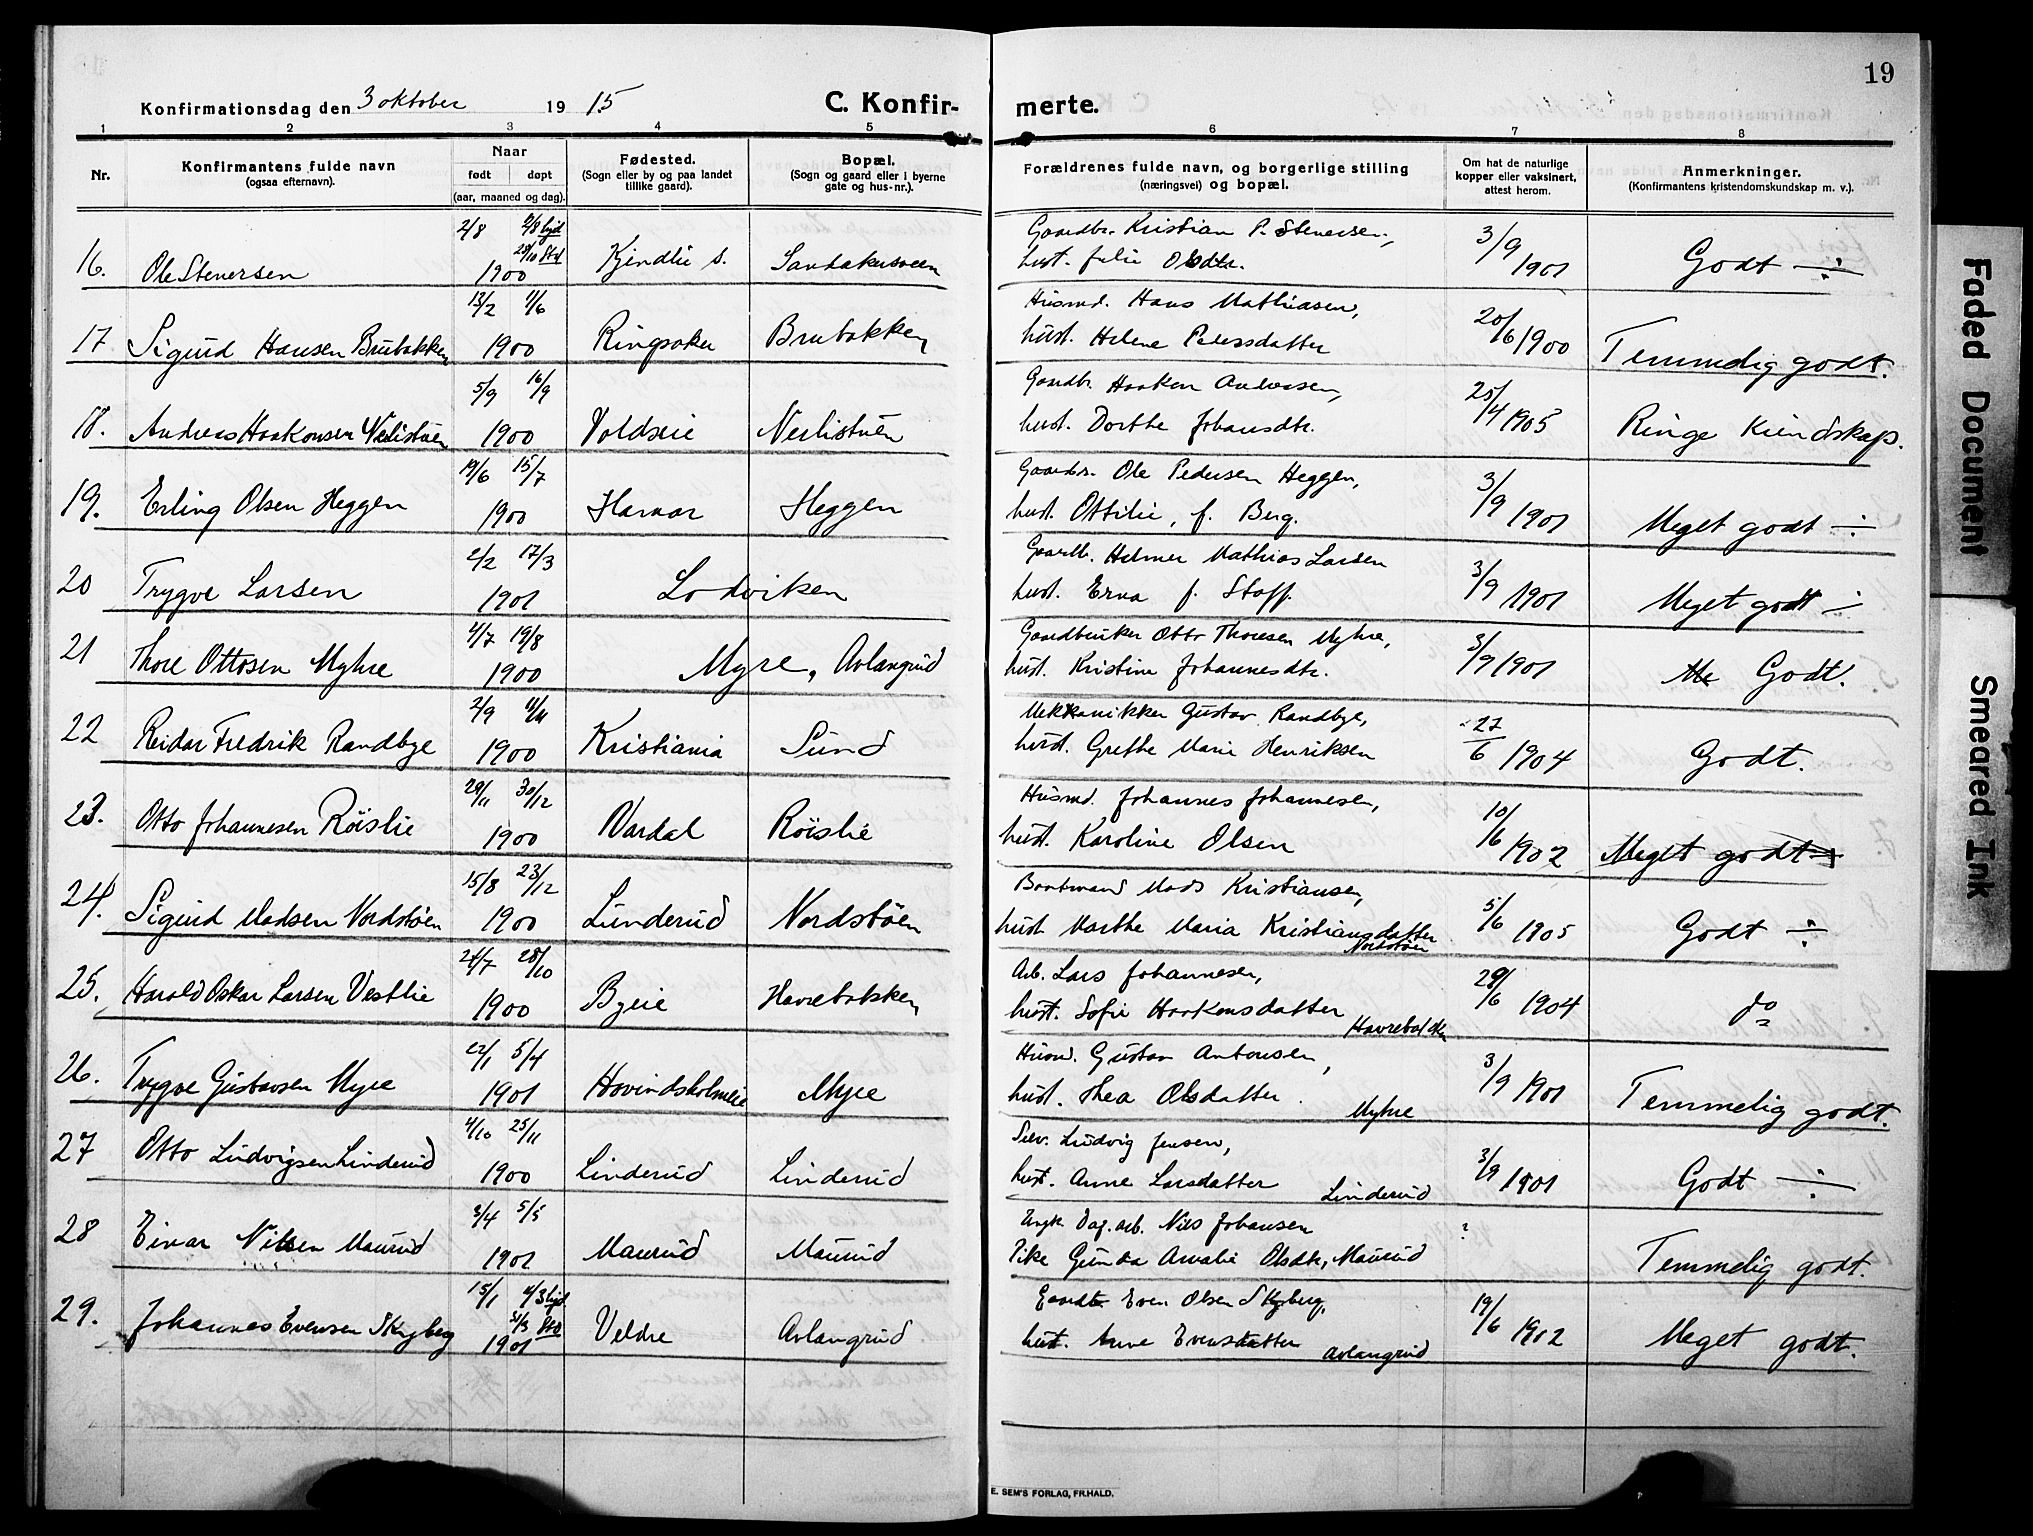 19
Konfirmationsdag den 3 oktober 1915 C. Konfir- merte.
1 2 3 4 5 6 7 8
Nr. Konfirmantens fulde navn (ogsaa efternavn). Naar født døpt (aar, maaned og dag). Fødested. (Sogn eller by og paa landet tillike gaard). Bopæl. (Sogn og gaard eller i byerne gate og hus-nr.). Forældrenes fulde navn, og borgerlige stilling (næringsvei) og bopæl. Om hat de naturlige kopper eller vaksinert, attest herom. Anmerkninger. (Konfirmantens kristendomskundskap m. v.).
2/8 Gaardbr. Kristian P. Stenersen, 3/9
16. Ole Stenersen 1900 Kjendlie s. hust. Julie Olsdtr. 1901 Godt ÷
13/2 4/6 Husmd. Hans Mathiasen, 20/6
17 Sigurd Hansen Brubakken 1900 Ringsaker Brubakken hust. Helene Pedersdatter 1900 Temmelig godt.
5/9 16/9 Gaardbr. Haakon Andreasen, 25/4
18. Andreas Haakonsen Nerlistuen 1900 Voldseie Nerlistuen hust. Dorthe Johansdtr. 1905 Ringe Kundskap.
19/6 15/7 Gaardbr. Ole Pedersen Heggen, 3/9
19. Erling Olsen Heggen 1900 Hamar Heggen hust. Ottilie, f. Berg. 1901 Meget godt ÷
2/2 17/3 Gaardb. Helmer Mathias Larsen 3/9
20 Trygve Larsen 1901 Lodviken hust. Erna f. Staff. 1901 Meget godt ÷
4/7 19/8 Gaardbruker Otto Thoresen Myhre, 3/9
21 Thore Ottosen Myhre 1900 Myre, Avlangrud hust. Kristine Johannesdtr. 1901 Godt.
2/9 Mekkanikker Gustav Randbye, 27/6
22 Reidar Fredrik Randbye 1900 Kristiania Sund hust. Grethe Marie Henriksen 1904 Godt.
29/11 30/12 Husmd. Johannes Johannesen, 10/6
23. Otto Johannesen Röislie 1900 Vardal Röislie hust. Karoline Olsen 1902 Meget godt
15/8 23/12 Baatmand Mads Kristiansen, 5/6
24. Sigurd Madsen Nordstöen 1900 Linderud Nordstöen hust. Marthe Maria Kristiansdatter Nordstöen 1905 Godt ÷
24/7 28/10 Arb. Lars Johannesen, 29/6
25. Harald Oskar Larsen Vestlie 1900 Byeie Havrebakken hust. Sofie Haakonsdatter 1904 do
22/1 5/4 Husmd. Gustav Antonsen, 3/9
26. Trygve Gustavsen Myre 1901 Hovindsholmeie Myre hust. Thea Olsdatter. Myhre 1901 Temmelig godt.
4/10 25/11 Selv. Ludvig Jensen, 3/9
27 Otto Ludvigsen Linderud 1900 Linderud Linderud hust. Anne Larsdatter Linderud 1901 Godt ÷
3/4 5/5 Ungk. Dag. arb. Nils Johansen ?
28 Einar Nilsen Maurud 1901 Maurud Maurud Pike Gunda Amalie Olsdtr, Maurud Temmelig godt.
15/1 4/3 hjd. Gaardbr. Even Olsen Skyberg, 19/6
29. Johannes Evensen Skyberg 31/3 Std 1901 Veldre Avlangrud hust. Anne Evensdatter Avlangrud 1902 Meget godt.
E. SEM'S FORLAG, FR.HALD.
Faded Document
Smeared Ink